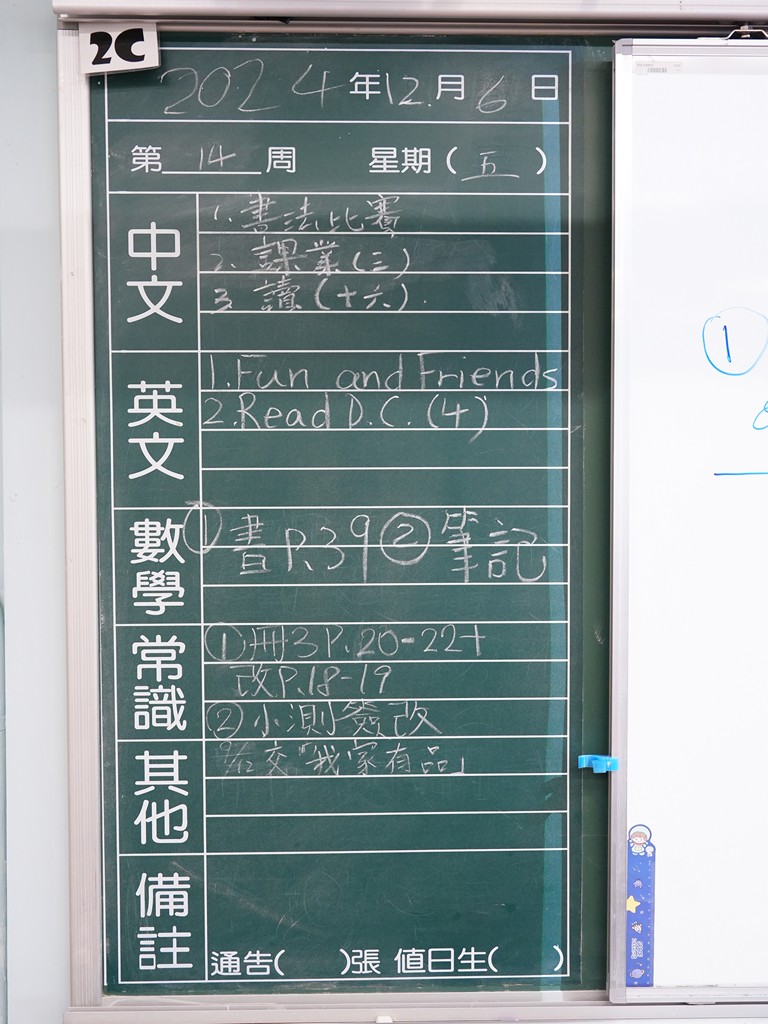 2C
2024年12月6日
第14周 星期(五)
中文
1. 書法比賽
2. 課業(三)
3. 讀(十六).
英文
1. Fun and Friends
2. Read D.C. (4)
數學
① 書P.39 ② 筆記
常識
① 冊3 P.20-22+
改P.18-19
② 小測簽改
其他
9/12交「我家有品」
備註
通告( )張 值日生( )
①